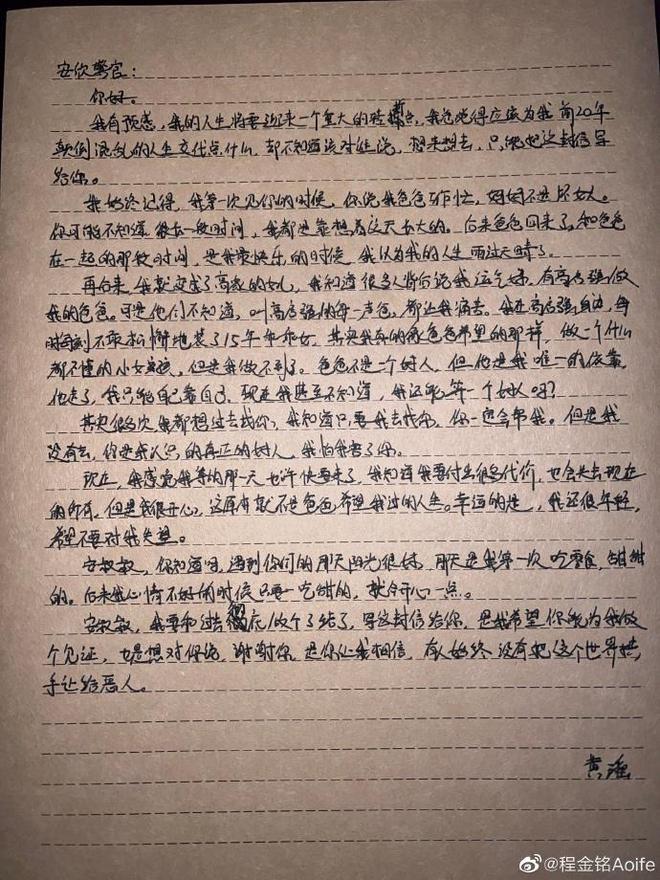 安欣警官：
你好。
我有预感，我的人生将要迎来一个重大的转折点，我总觉得应该为我前20年
颠倒混乱的人生交代点什么，却不知道该对谁说，想来想去，只能把这封信写
给你。
我始终记得，我第一次见你的时候，你说我爸爸工作忙，妈妈不是坏女人。
你可能不知道，很长一段时间，我都是靠想着这天长大的。后来爸爸回来了，和爸爸
在一起的那段时间，是我最快乐的时候，我以为我的人生雨过天晴了。
再后来，我就变成了高家的女儿，我知道很多人背后说我运气好，有高启强做
我的爸爸。可是他们不知道，叫高启强的每一声爸，都让我痛苦。我在高启强身边，每
时每刻不敢松懈地装了15年乖乖女。其实我真的像爸爸希望的那样，做一个什么
都不懂的小女孩，但是我做不到了。爸爸不是一个好人，但他是我唯一的依靠，
他走了，我只能自己靠自己，现在我甚至不知道，我还能算一个好人吗？
其实很多次我都想过去找你，我知道只要我去找你，你一定会帮我。但是我
没有去，你是我认识的真正的好人，我怕我害了你。
现在，我感觉我等的那一天也许快要来了，我知道我要付出很多代价，也会失去现在
的所有，但是我很开心，这原本就不是爸爸希望我过的人生。幸运的是，我还很年轻，
希望不要对我失望。
安叔叔，你知道吗，遇到你们的那天阳光很好，那天是我第一次吃零食，甜甜
的。后来我心情不好的时候只要一吃甜的，就会开心一点。
安叔叔，我要和过去彻底做个了结了，写这封信给你，是我希望你能为我做
个见证，也是想对你说，谢谢你，是你让我相信，有人始终没有把这个世界拱
手让给恶人。
黄瑶
@程金铭Aoife